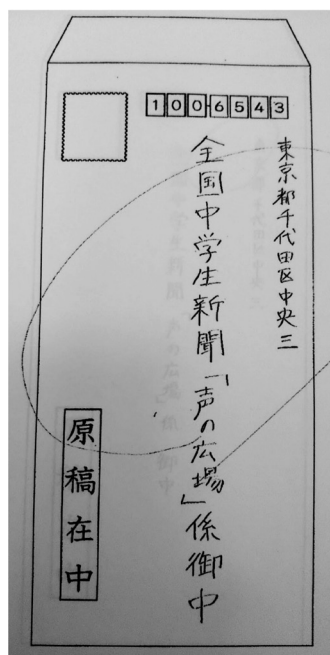 1006543
東京都千代田区中央三
全国中学生新聞「声の広場」係御中
原稿在中